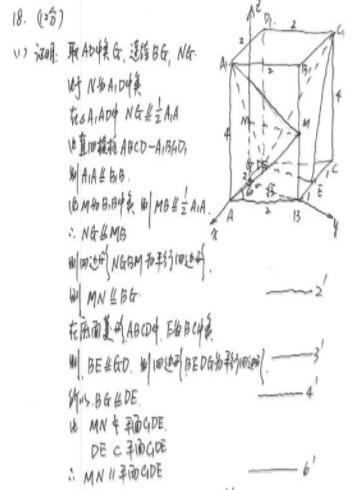 18. (12分)
(1) 证明: 取AD中点G, 连结BG, NG.
由于N为A₁D中点
在△A₁AD中 NG⫽½A₁A
由直四棱柱ABCD-A₁B₁C₁D₁
则A₁A⫽B₁B.
由M为B₁B中点 则MB⫽½A₁A.
∴ NG⫽MB
则四边形NGBM为平行四边形.
则 MN⫽BG ——2'
在底面菱形ABCD中, E为BC中点
则 BE⫽GD. 则四边形BEDG为平行四边形. ——3'
所以 BG⫽DE. ——4'
由 MN⊄平面C₁DE
DE⊂平面C₁DE
∴ MN∥平面C₁DE ——6'
z
D₁
2
C₁
A₁
2
B₁
4
4
4
N
M
G
D
C
E
60°
√3
1
A
2
B
x
y